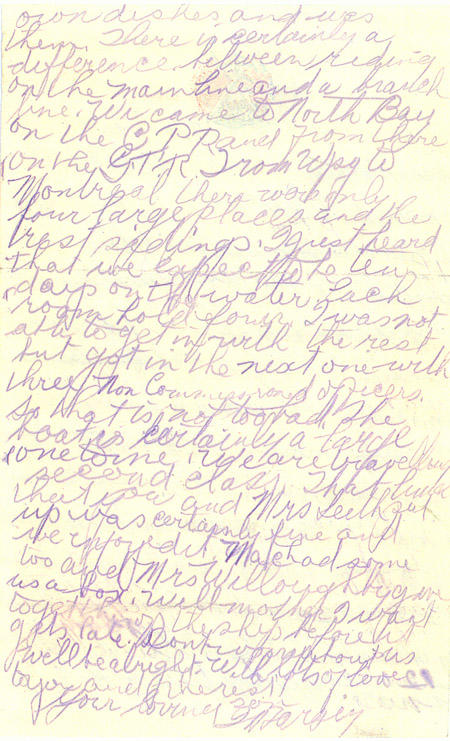 own dishes and uses
them. There is certainly a
difference between riding
on the mainline and a branch
line. We came to North Bay
on the C.P.R and from there
on the G.T.R. From Wpg to
Montreal there were only
four large places and the
rest sidings. I just heard
that we expect to be ten
days on the water. Each
room holds four. I was not
able to get in with the rest
but got in the next one with
three Non Commissioned officers.
So that is not too bad. The
boat is certainly a large
one too. We are travelling
second class. That lunch
that you and Mrs Leith put
up was certainly fine and
we enjoyed it. Mac had some
too and Mrs Willoughby gave
us a box. Well mother I want
to get the ship before it
gets late. Don't worry about us
we'll be alright. With lots of love
to you and the rest
Your loving son
Harvey